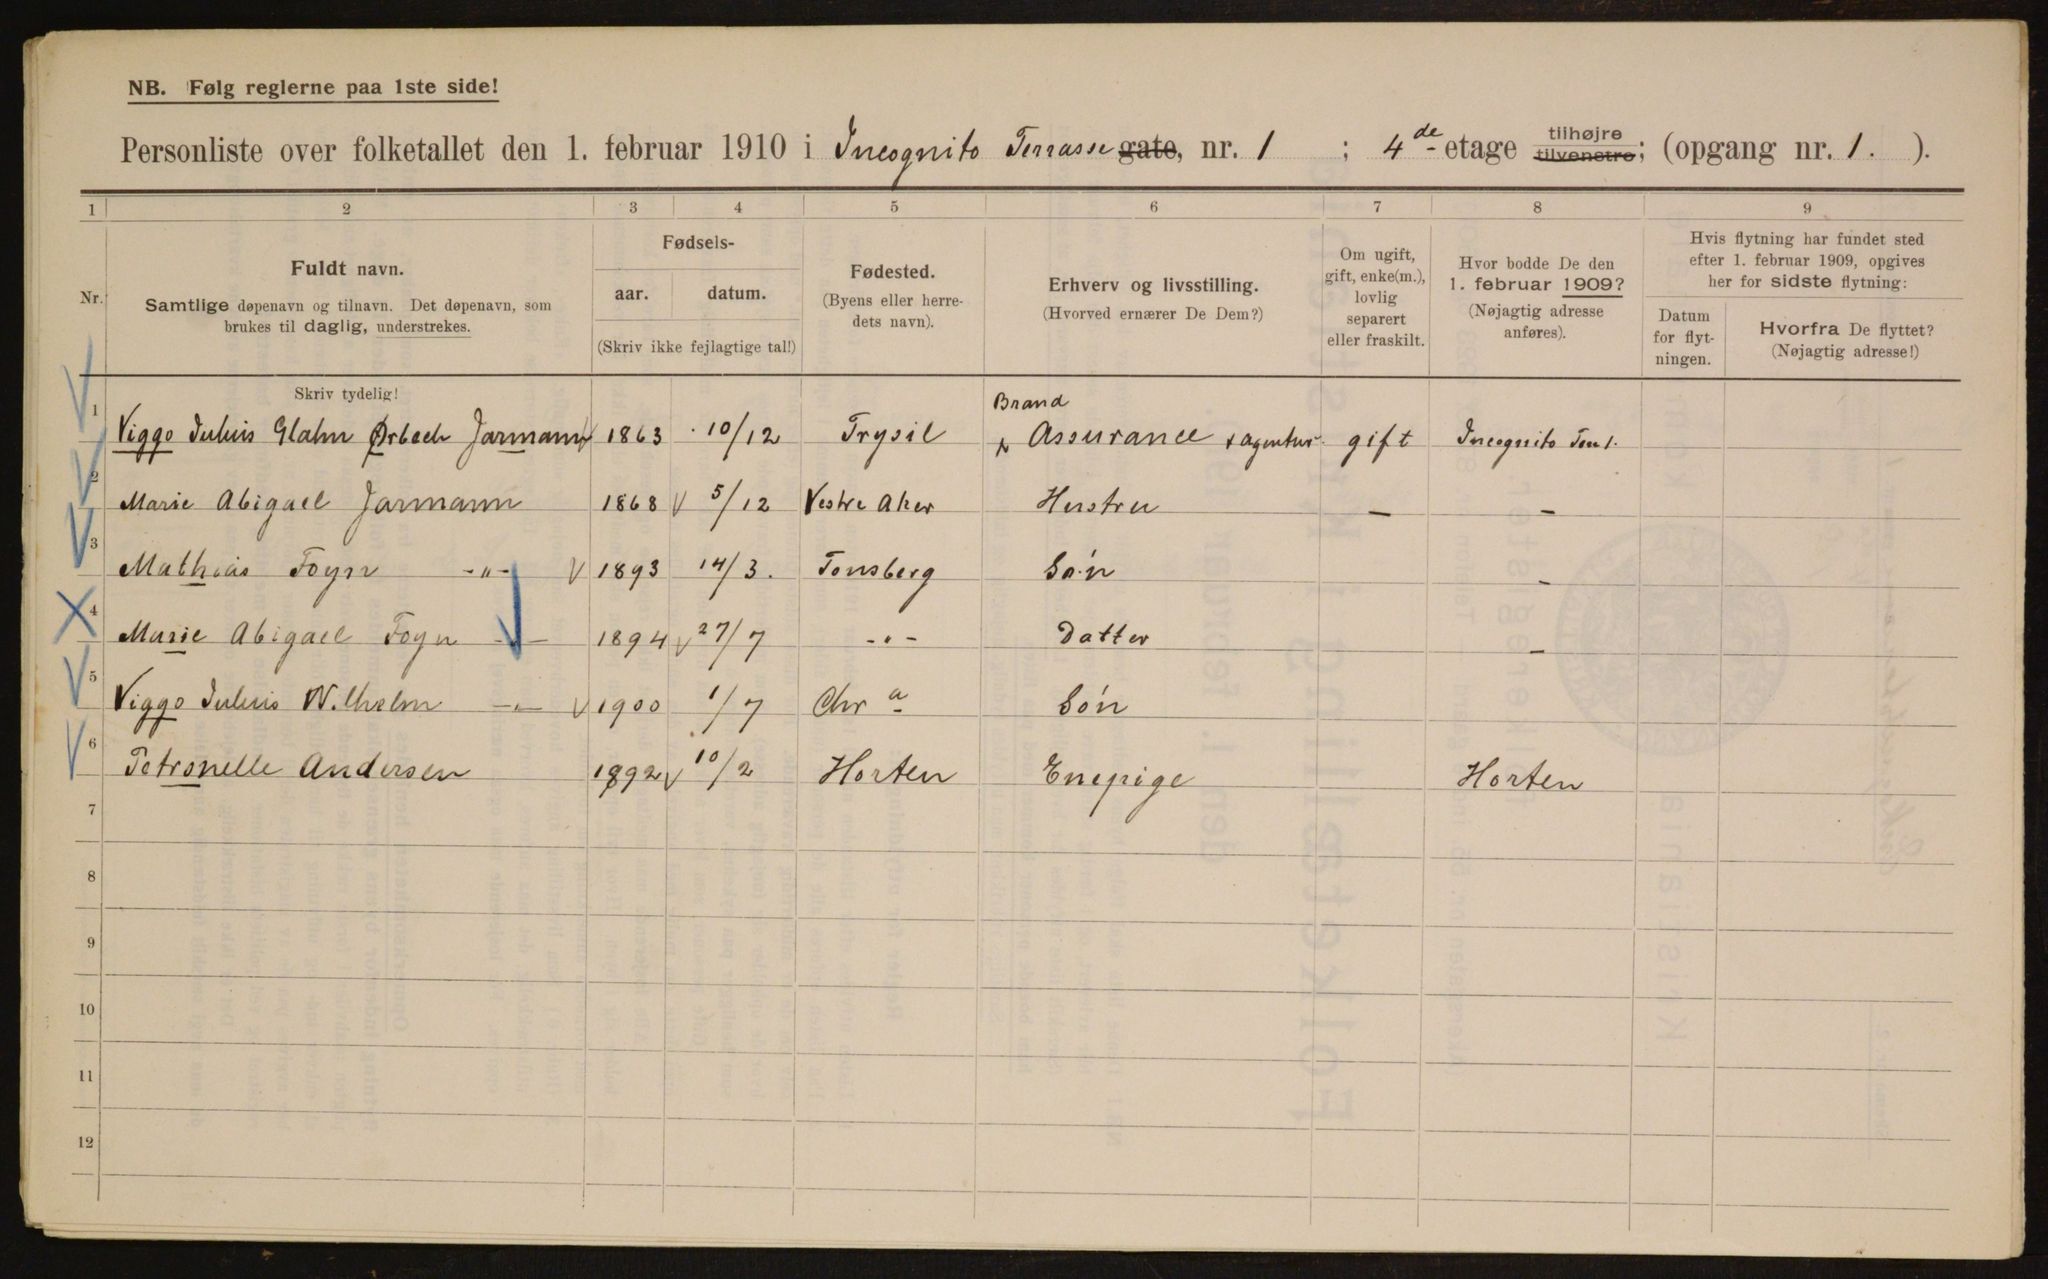 NB. Følg reglerne paa 1ste side!
Personliste over folketallet den 1. februar 1910 i Incognito Terrasse gate, nr. 1 ; 4de etage tilhøjre tilvenstre; (opgang nr. 1. ).
1 2 3 4 5 6 7 8 9
Nr.
Fuldt navn.
Samtlige døpenavn og tilnavn. Det døpenavn, som
brukes til daglig, understrekes.
Fødsels-
aar. datum.
(Skriv ikke fejlagtige tal!)
Fødested.
(Byens eller herre-
dets navn).
Erhverv og livsstilling.
(Hvorved ernærer De Dem?)
Om ugift,
gift, enke(m.),
lovlig
separert
eller fraskilt.
Hvor bodde De den
1. februar 1909?
(Nøjagtig adresse
anføres).
Hvis flytning har fundet sted
efter 1. februar 1909, opgives
her for sidste flytning:
Datum
for flyt-
ningen.
Hvorfra De flyttet?
(Nøjagtig adresse!)
Skriv tydelig!
1 Viggo Julius Glahn Ørbech Jarmann 1863 10/12 Trysil Brand Assurance + agentur gift Incognito Terr 1.
2 Marie Abigael Jarmann 1868 5/12 Vestre Aker Hustru — —
3 Mathias Foyn -"- 1893 14/3. Tonsberg Søn —
4 Marie Abigael Foyn -"- 1894 27/7 -"- Datter —
5 Viggo Julius Wilhelm -"- 1900 1/7 Chr a Són
6 Petronelle Andersen 1892 10/2 Horten Enepige Horten
7
8
9
10
11
12